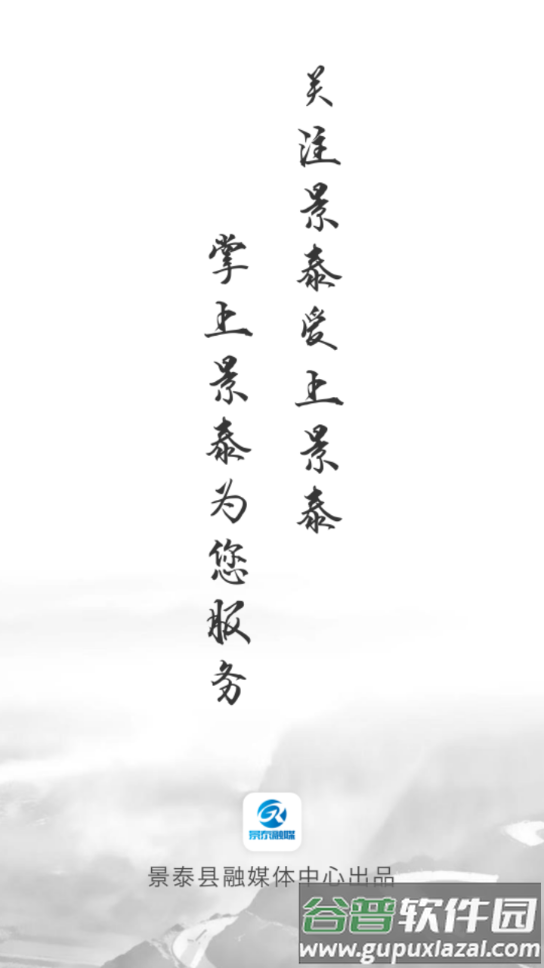 关注景泰受上景泰
掌上景泰为您服务
景泰融媒
景泰县融媒体中心出品
谷普软件园
www.gupuxlazal.com